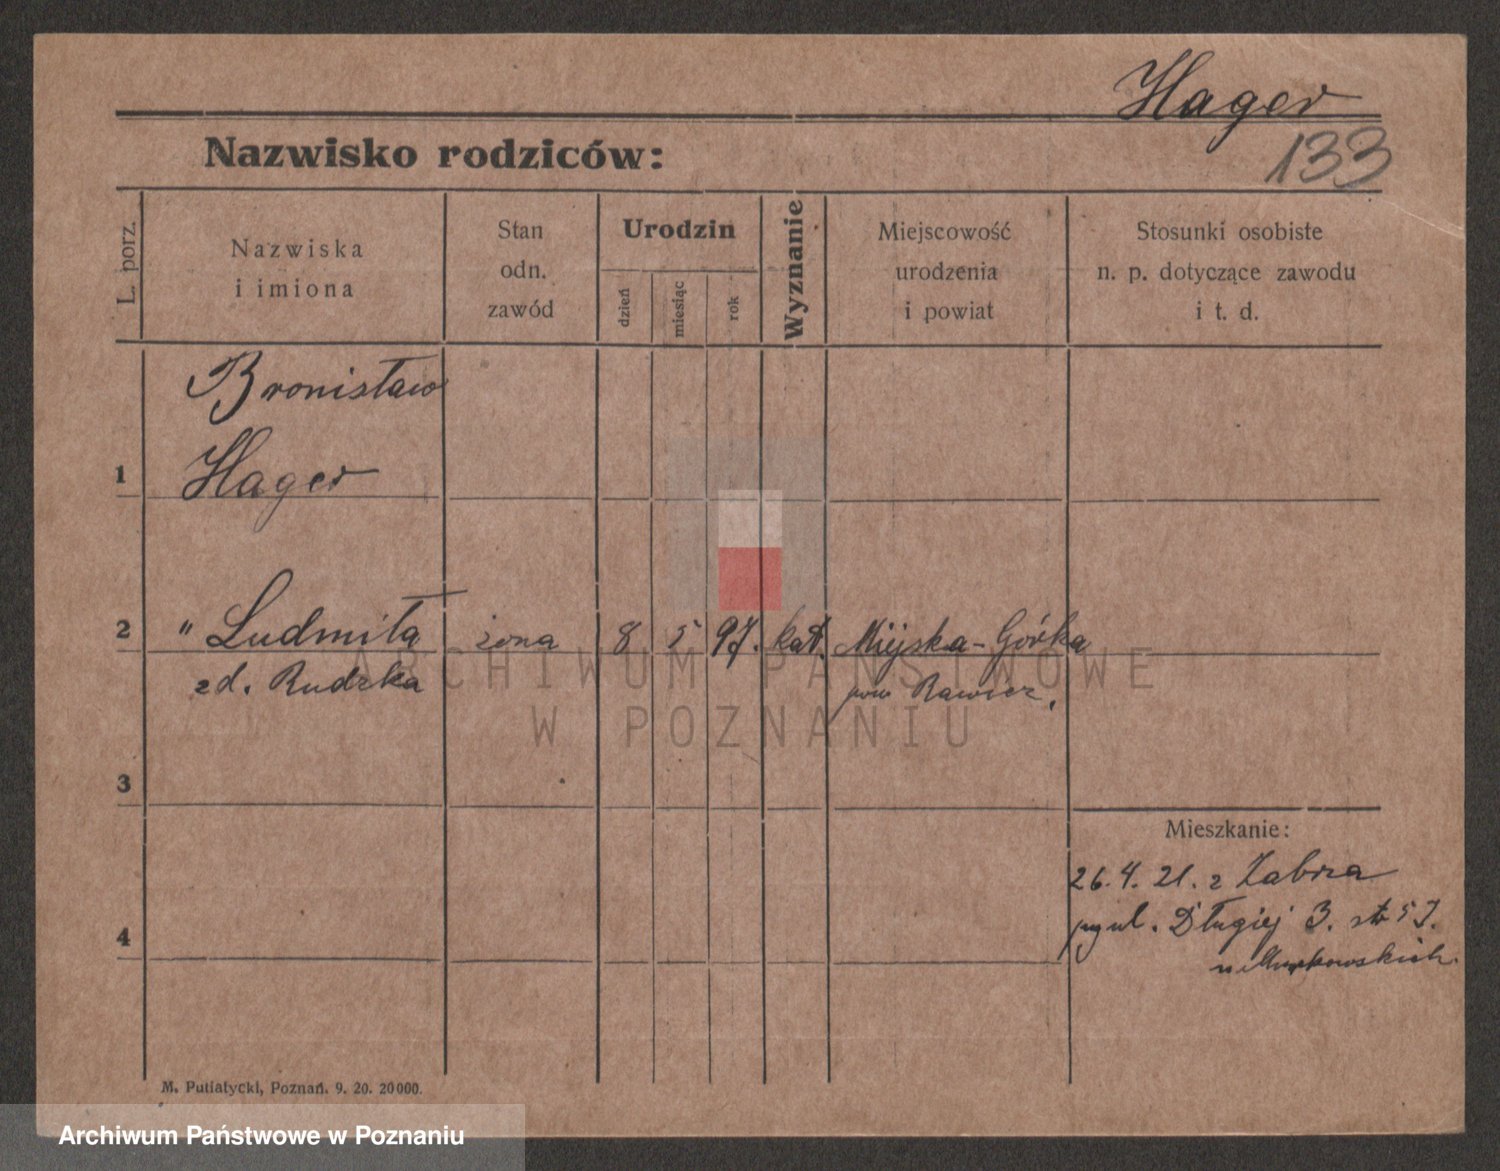 Hager
133
Nazwisko rodziców:
L. porz.
Nazwiska
i imiona
Stan
odn.
zawód
Urodzin
dzień
miesiąc
rok
Wyznanie
Miejscowość
urodzenia
i powiat
Stosunki osobiste
n. p. dotyczące zawodu
i t. d.
Bronisław
1 Hager
2 " Ludmiła żona 8 5 97. kat. Miejska-Górka
zd. Rudzka pow Rawicz.
3
Mieszkanie:
26.4.21. z Zabrza
ul. Długiej 3. str 57.
4
M. Putiatycki, Poznań. 9. 20. 20000.
ARCHIWUM PAŃSTWOWE
W POZNANIU
Archiwum Państwowe w Poznaniu